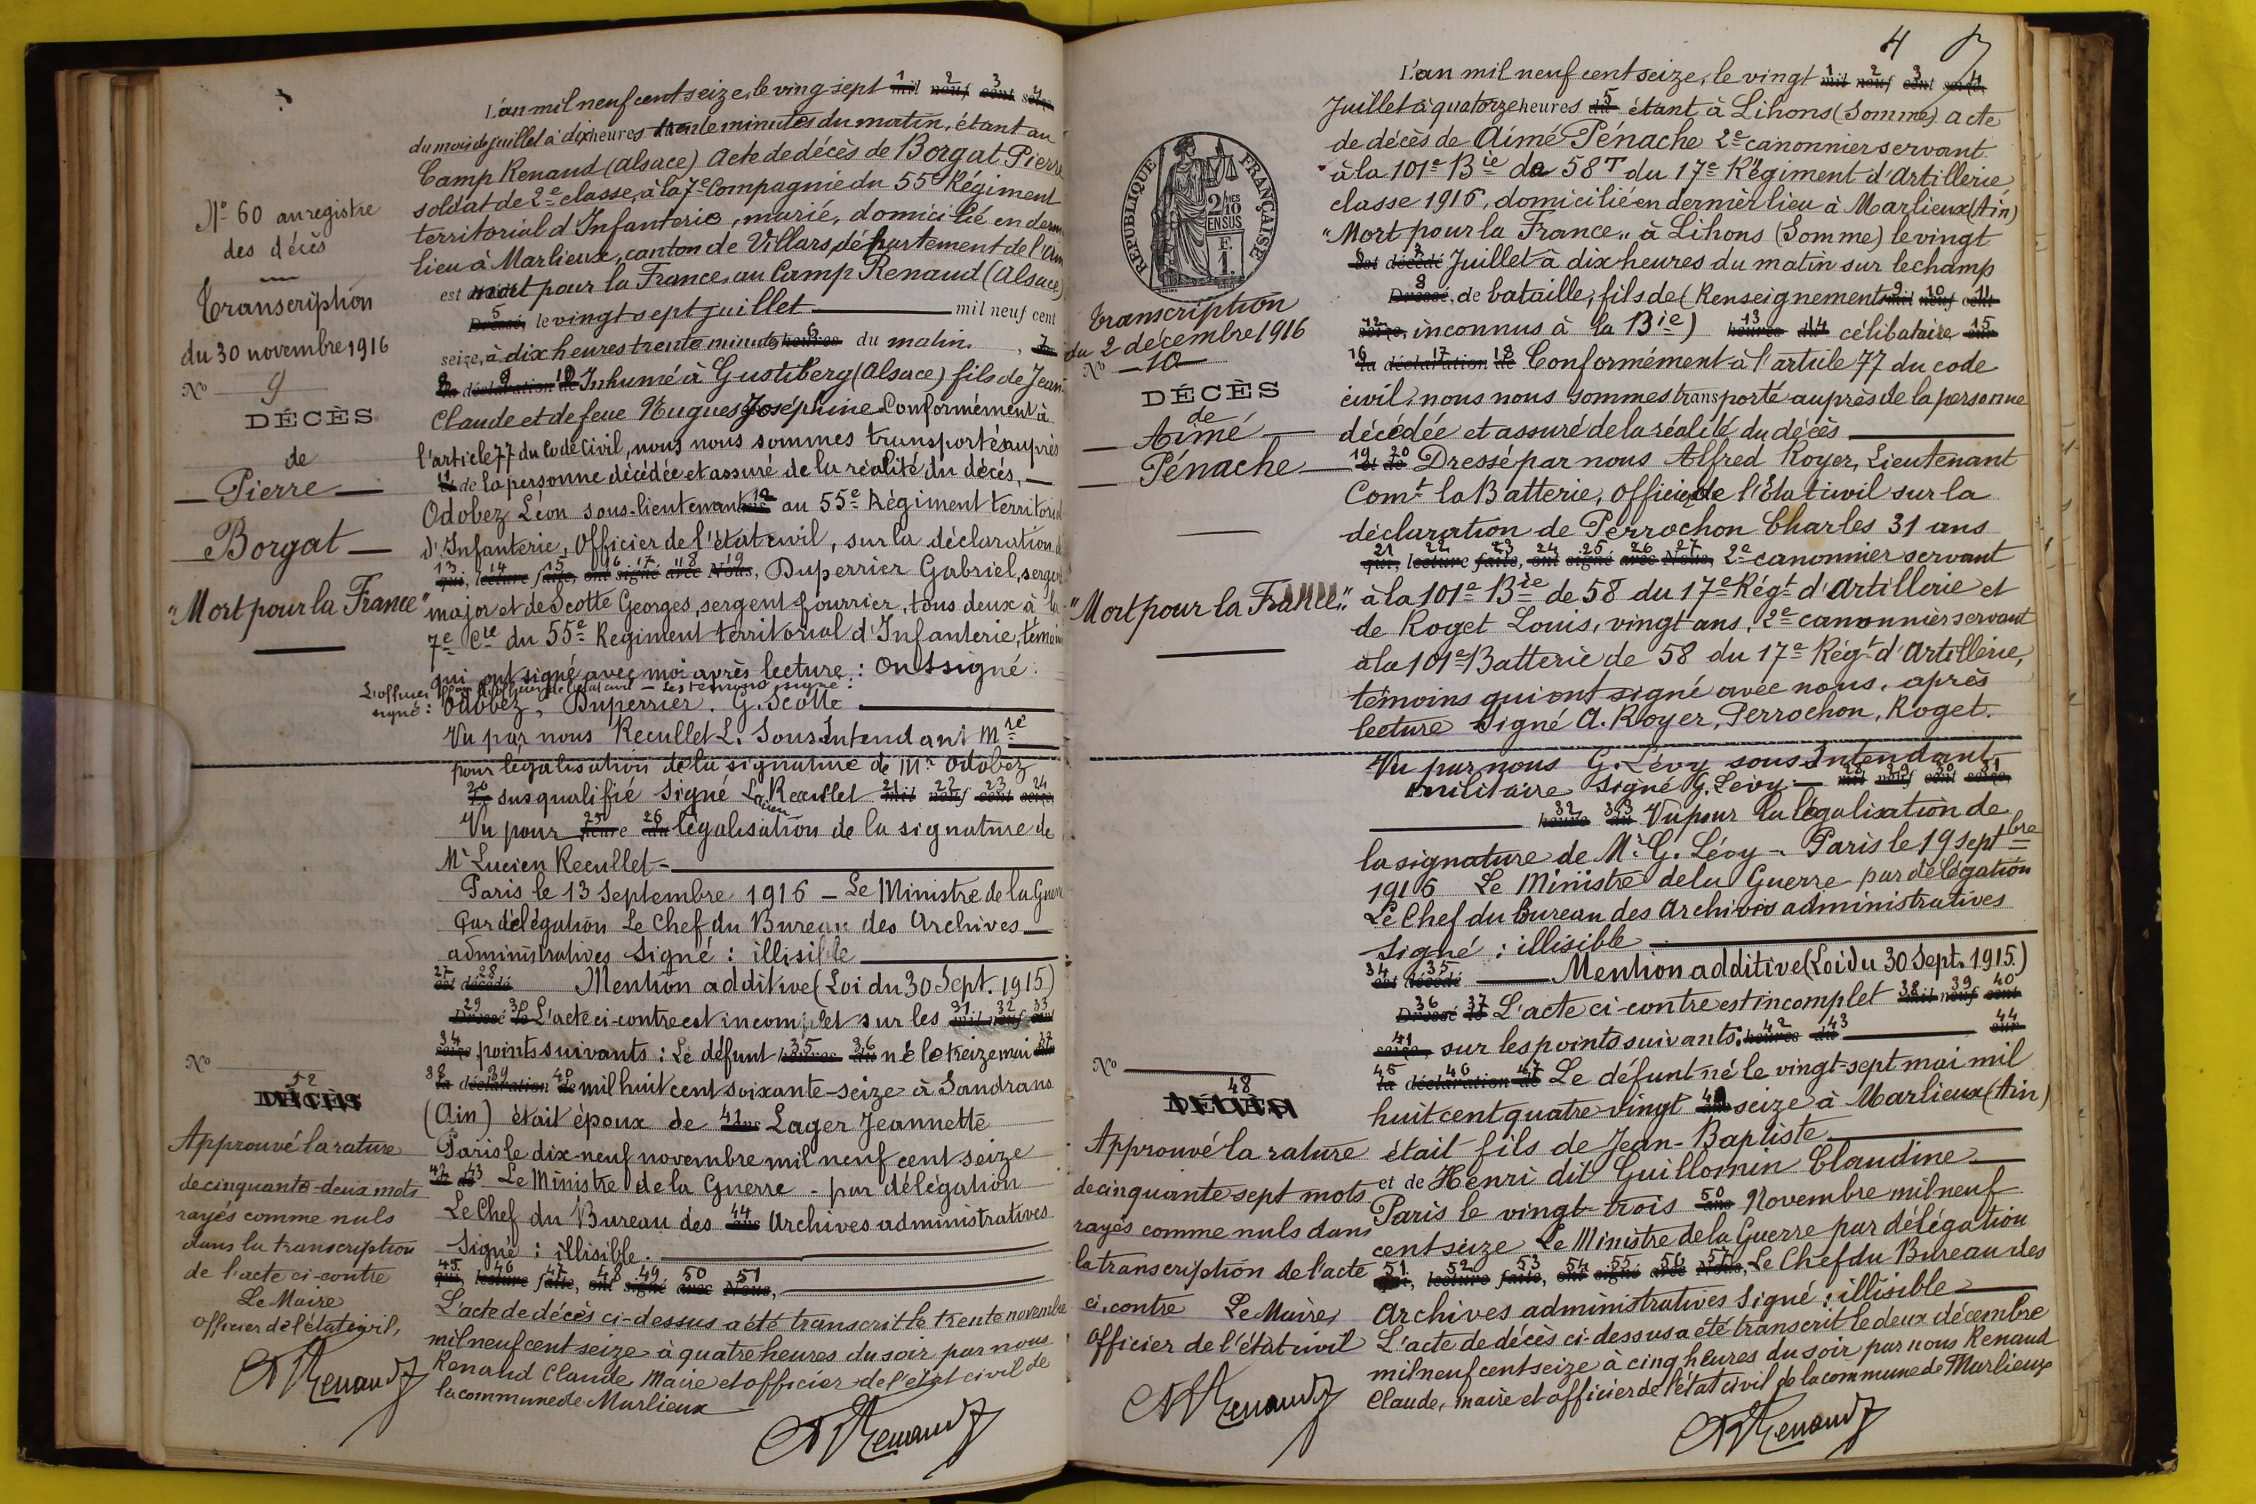 Nº 60 au registre
des décès
Transcription
du 30 novembre 1916
Nº 9
DÉCÈS
de
Pierre
Borgat
"Mort pour la France"
Nº
52
DÉCÈS
Approuvé la rature
de cinquante-deux mots
rayés comme nuls
dans la transcription
de l'acte ci-contre
Le Maire
officier de l'état civil,
Renaud
L'an mil neuf cent seize, le ving sept 1 mil 2 neuf 3 cent 4 seize
du mois de juillet à dix heures trente minutes du matin, étant au
Camp Renaud (Alsace) Acte de décès de Borgat Pierre
soldat de 2e classe, à la 7e Compagnie du 55e Régiment
territorial d'Infanterie, marié, domicilié en dern
lieu à Marlieux, canton de Villars, département de l'Ain
est mort pour la France, au Camp Renaud (Alsace)
5 Dressé, le vingt sept juillet mil neuf cent
seize, à dix heures trente minutes 6 heures du matin, 7
8 la 9 déclaration 10 de Inhumé à Gustiberg (Alsace) fils de Jean
Claude et de feue Hugues Joséphine Conformément à
l'article 77 du Code Civil, nous nous sommes transporté auprès
11 et de la personne décédée et assuré de la réalité du décès,
Odobez Léon sous-lieutenant 12 au 55e Régiment territorial
d'Infanterie, Officier de l'état civil, sur la déclaration de
13 qui, 14 lecture 15 faite, 16 ont 17 signé 18 avec 19 Nous, Duperrier Gabriel, sergen
major et de Scotte Georges, sergent fourrier, tous deux à la
7e Cie du 55e Régiment territorial d'Infanterie, témoin
qui ont signé avec moi après lecture : Ont signé :
L'officier de l'état civil — Les témoins signé :
signé : Odobez, Duperrier. G. Scotte
Vu par nous Recullet L. Sous Intendant Mre
pour légalisation de la signature de Mr Odobez
20 susqualifié Signé Lucien Recullet 21 mil 22 neuf 23 cent 24 seize,
Vu pour 25 heure 26 du légalisation de la signature de
Mr Lucien Recullet
Paris le 13 Septembre 1916 — Le Ministre de la Guerre
Par délégation Le Chef du Bureau des Archives
administratives Signé : illisible
27 est 28 décédé Mention additive (Loi du 30 Sept. 1915)
29 Dressé 30 le L'acte ci-contre est incomplet sur les 31 mil 32 neuf 33 cent
34 seize, points suivants : Le défunt 35 heures 36 du né le treize mai 37 sur
38 la 39 déclaration 40 de mil huit cent soixante-seize à Sandrans
(Ain) était époux de 41 Lager Jeannette
Paris le dix-neuf novembre mil neuf cent seize
42 et 43 de Le Ministre de la Guerre - par délégation
Le Chef du Bureau des 44 ans Archives administratives
Signé : illisible.
45 qui, 46 lecture 47 faite, 48 ont 49 signé 50 avec 51 Nous,
L'acte de décès ci-dessus a été transcrit le trente novembre
mil neuf cent seize à quatre heures du soir par nous
Renaud Claude, Maire et officier de l'état civil de
la commune de Marlieux
Renaud
4
RÉPUBLIQUE FRANÇAISE
2/10
EN SUS
F.
1.
Transcription
du 2 décembre 1916
Nº 10
DÉCÈS
de
Aimé
Pénache
"Mort pour la France"
Nº
48
DÉCÈS
Approuvé la rature
de cinquante sept mots
rayés comme nuls dans
la transcription de l'acte
ci-contre Le Maire,
officier de l'état civil
Renaud
L'an mil neuf cent seize, le vingt 1 mil 2 neuf 3 cent 4 seize,
Juillet à quatorze heures 5 du étant à Lihons (Somme) acte
de décès de Aimé Pénache 2e canonnier servant
à la 101e Bie de 58 T du 17e Régiment d'Artillerie
classe 1916, domicilié en dernier lieu à Marlieux (Ain)
"Mort pour la France" à Lihons (Somme) le vingt
est décédé Juillet à dix heures du matin sur le champ
8 Dressé, de bataille, fils de (Renseignements 9 mil 10 neuf 11 cent
12 seize, inconnus à la Bie) 13 heures 14 du célibataire 15 sur
16 la 17 déclaration 18 de Conformément à l'article 77 du code
civil, nous nous sommes transporté auprès de la personne
décédée et assuré de la réalité du décès
19 et 20 de Dressé par nous Alfred Royer, Lieutenant
Comt la Batterie, officier de l'État civil sur la
déclaration de Perrochon Charles 31 ans
21 qui, 22 lecture 23 faite, 24 ont 25 signé 26 avec 27 Nous, 2e canonnier servant
à la 101e Bie de 58 du 17e Régt d'Artillerie et
de Roget Louis, vingt ans, 2e canonnier servant
à la 101e Batterie de 58 du 17e Régt d'Artillerie,
témoins qui ont signé avec nous, après
lecture Signé A. Royer, Perrochon, Roget.
Vu par nous G. Lévy sous Intendant
militaire Signé G. Lévy 28 mil 29 neuf 30 cent 31 seize,
32 heures 33 du Vu pour la légalisation de
la signature de Mr G. Lévy - Paris le 19 Septbre
1916 Le Ministre de la Guerre par délégation
Le Chef du Bureau des Archives administratives
Signé : illisible
34 est 35 décédé Mention additive (Loi du 30 Sept. 1915.)
36 Dressé 37 le L'acte ci-contre est incomplet 38 mil 39 neuf 40 cent
41 seize, sur les points suivants : 42 heures 43 du 44 sur
45 la 46 déclaration 47 de Le défunt né le vingt-sept mai mil
huit cent quatre vingt 49 seize à Marlieux (Ain)
était fils de Jean-Baptiste
et de Henri dit Guillomin Claudine
Paris le vingt-trois 50 ans Novembre mil neuf
cent seize Le Ministre de la Guerre par délégation
51 qui, 52 lecture 53 faite, 54 ont 55 signé 56 avec 57 Nous, Le Chef du Bureau des
Archives administratives Signé : illisible
L'acte de décès ci-dessus a été transcrit le deux décembre
mil neuf cent seize à cinq heures du soir par nous Renaud
Claude, maire et officier de l'état civil de la commune de Marlieux
Renaud